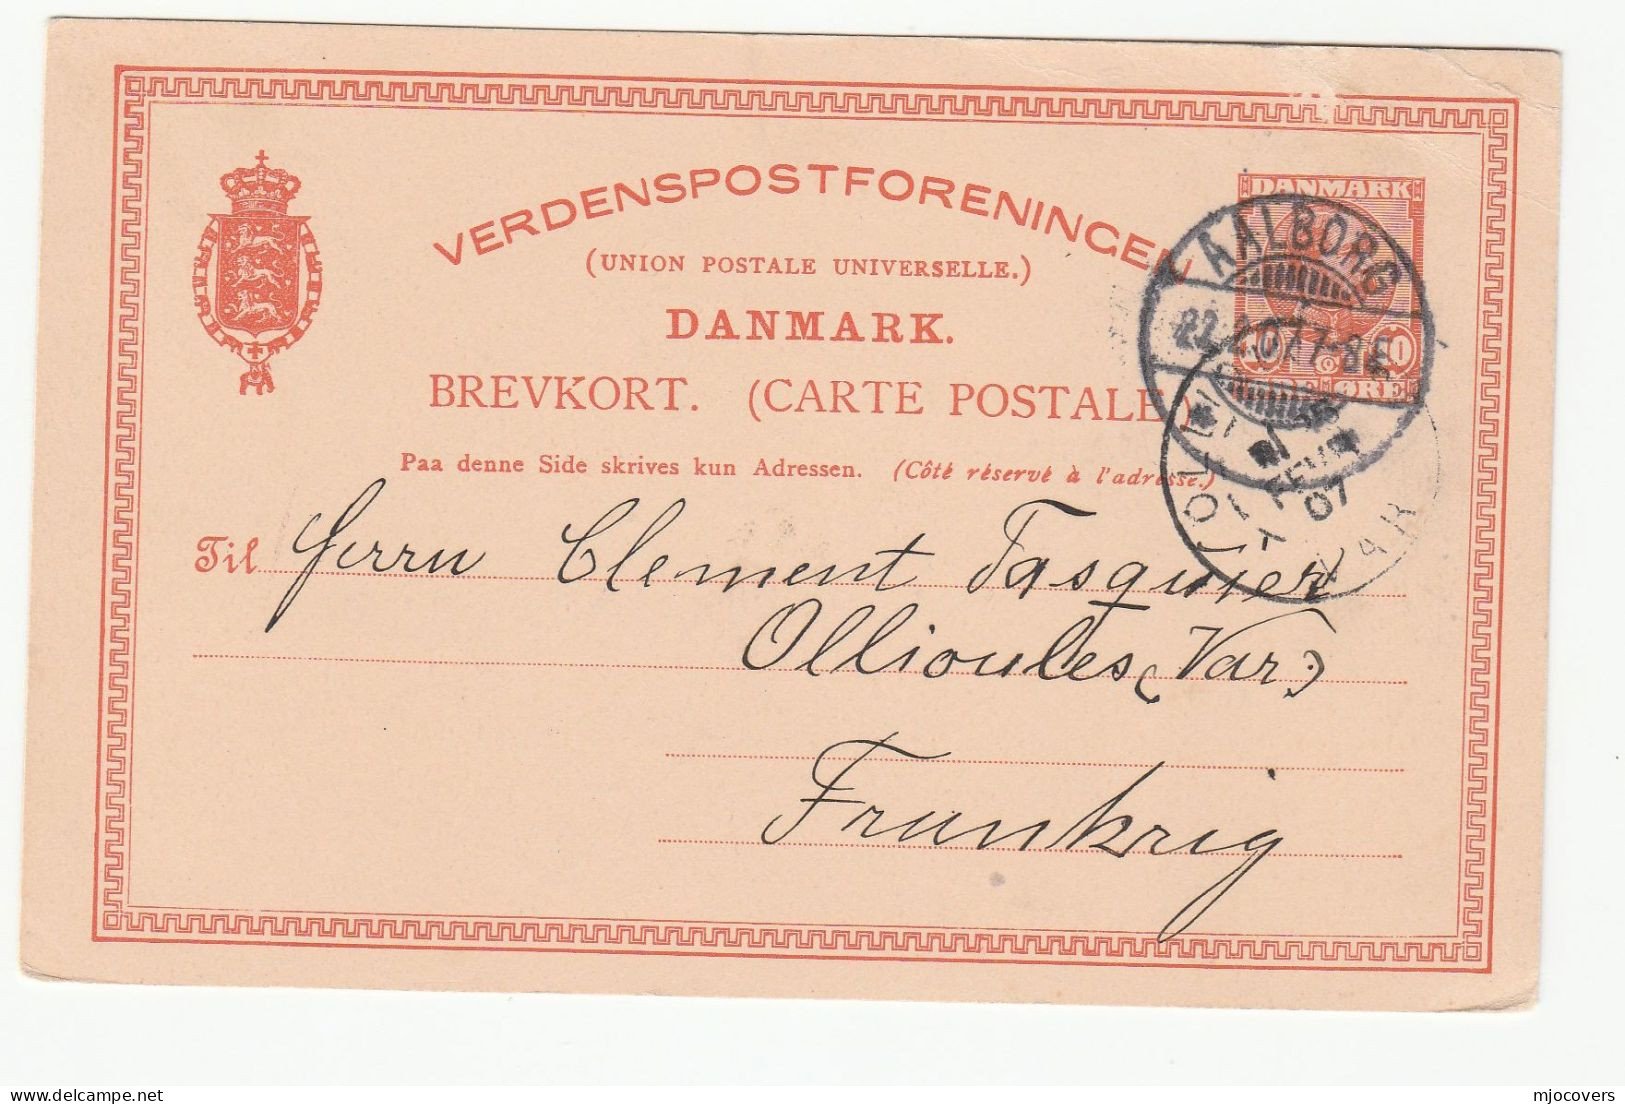 VERDENSPOSTFORENINGEN
(UNION POSTALE UNIVERSELLE.)
DANMARK.
BREVKORT. (CARTE POSTALE)
Paa denne Side skrives kun Adressen. (Côté réservé à l'adresse.)
DANMARK
10 10
ØRE
AALBORG
22.2.07.7-8 E
FEVR
07
VAR
Til Herrn Clement Tasquier
Ollioules (Var.)
Frankrig
delcampe.net
mjocovers